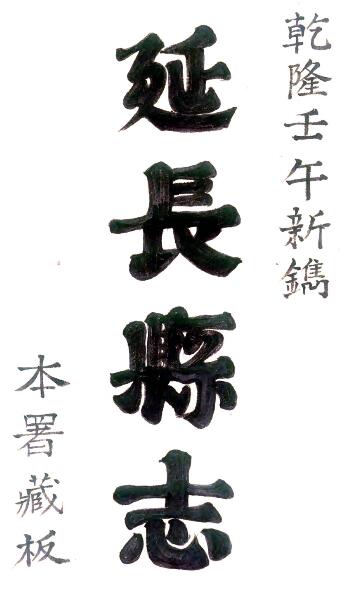 乾隆壬午新鐫
延長縣志
本署藏板